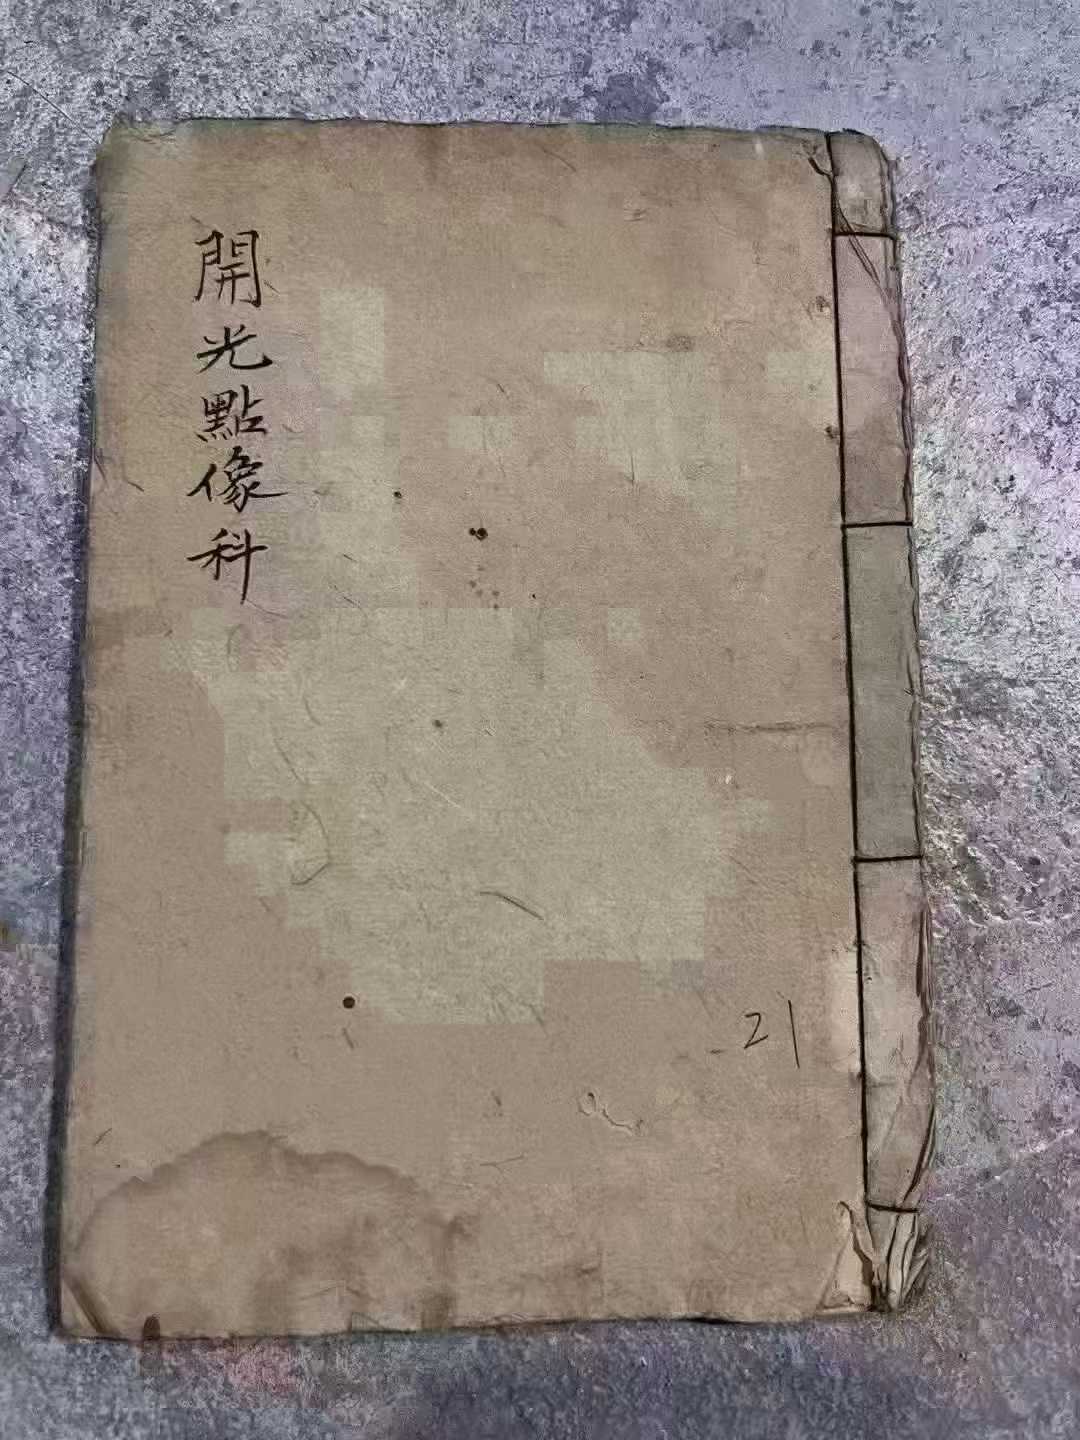 開光點像科
21